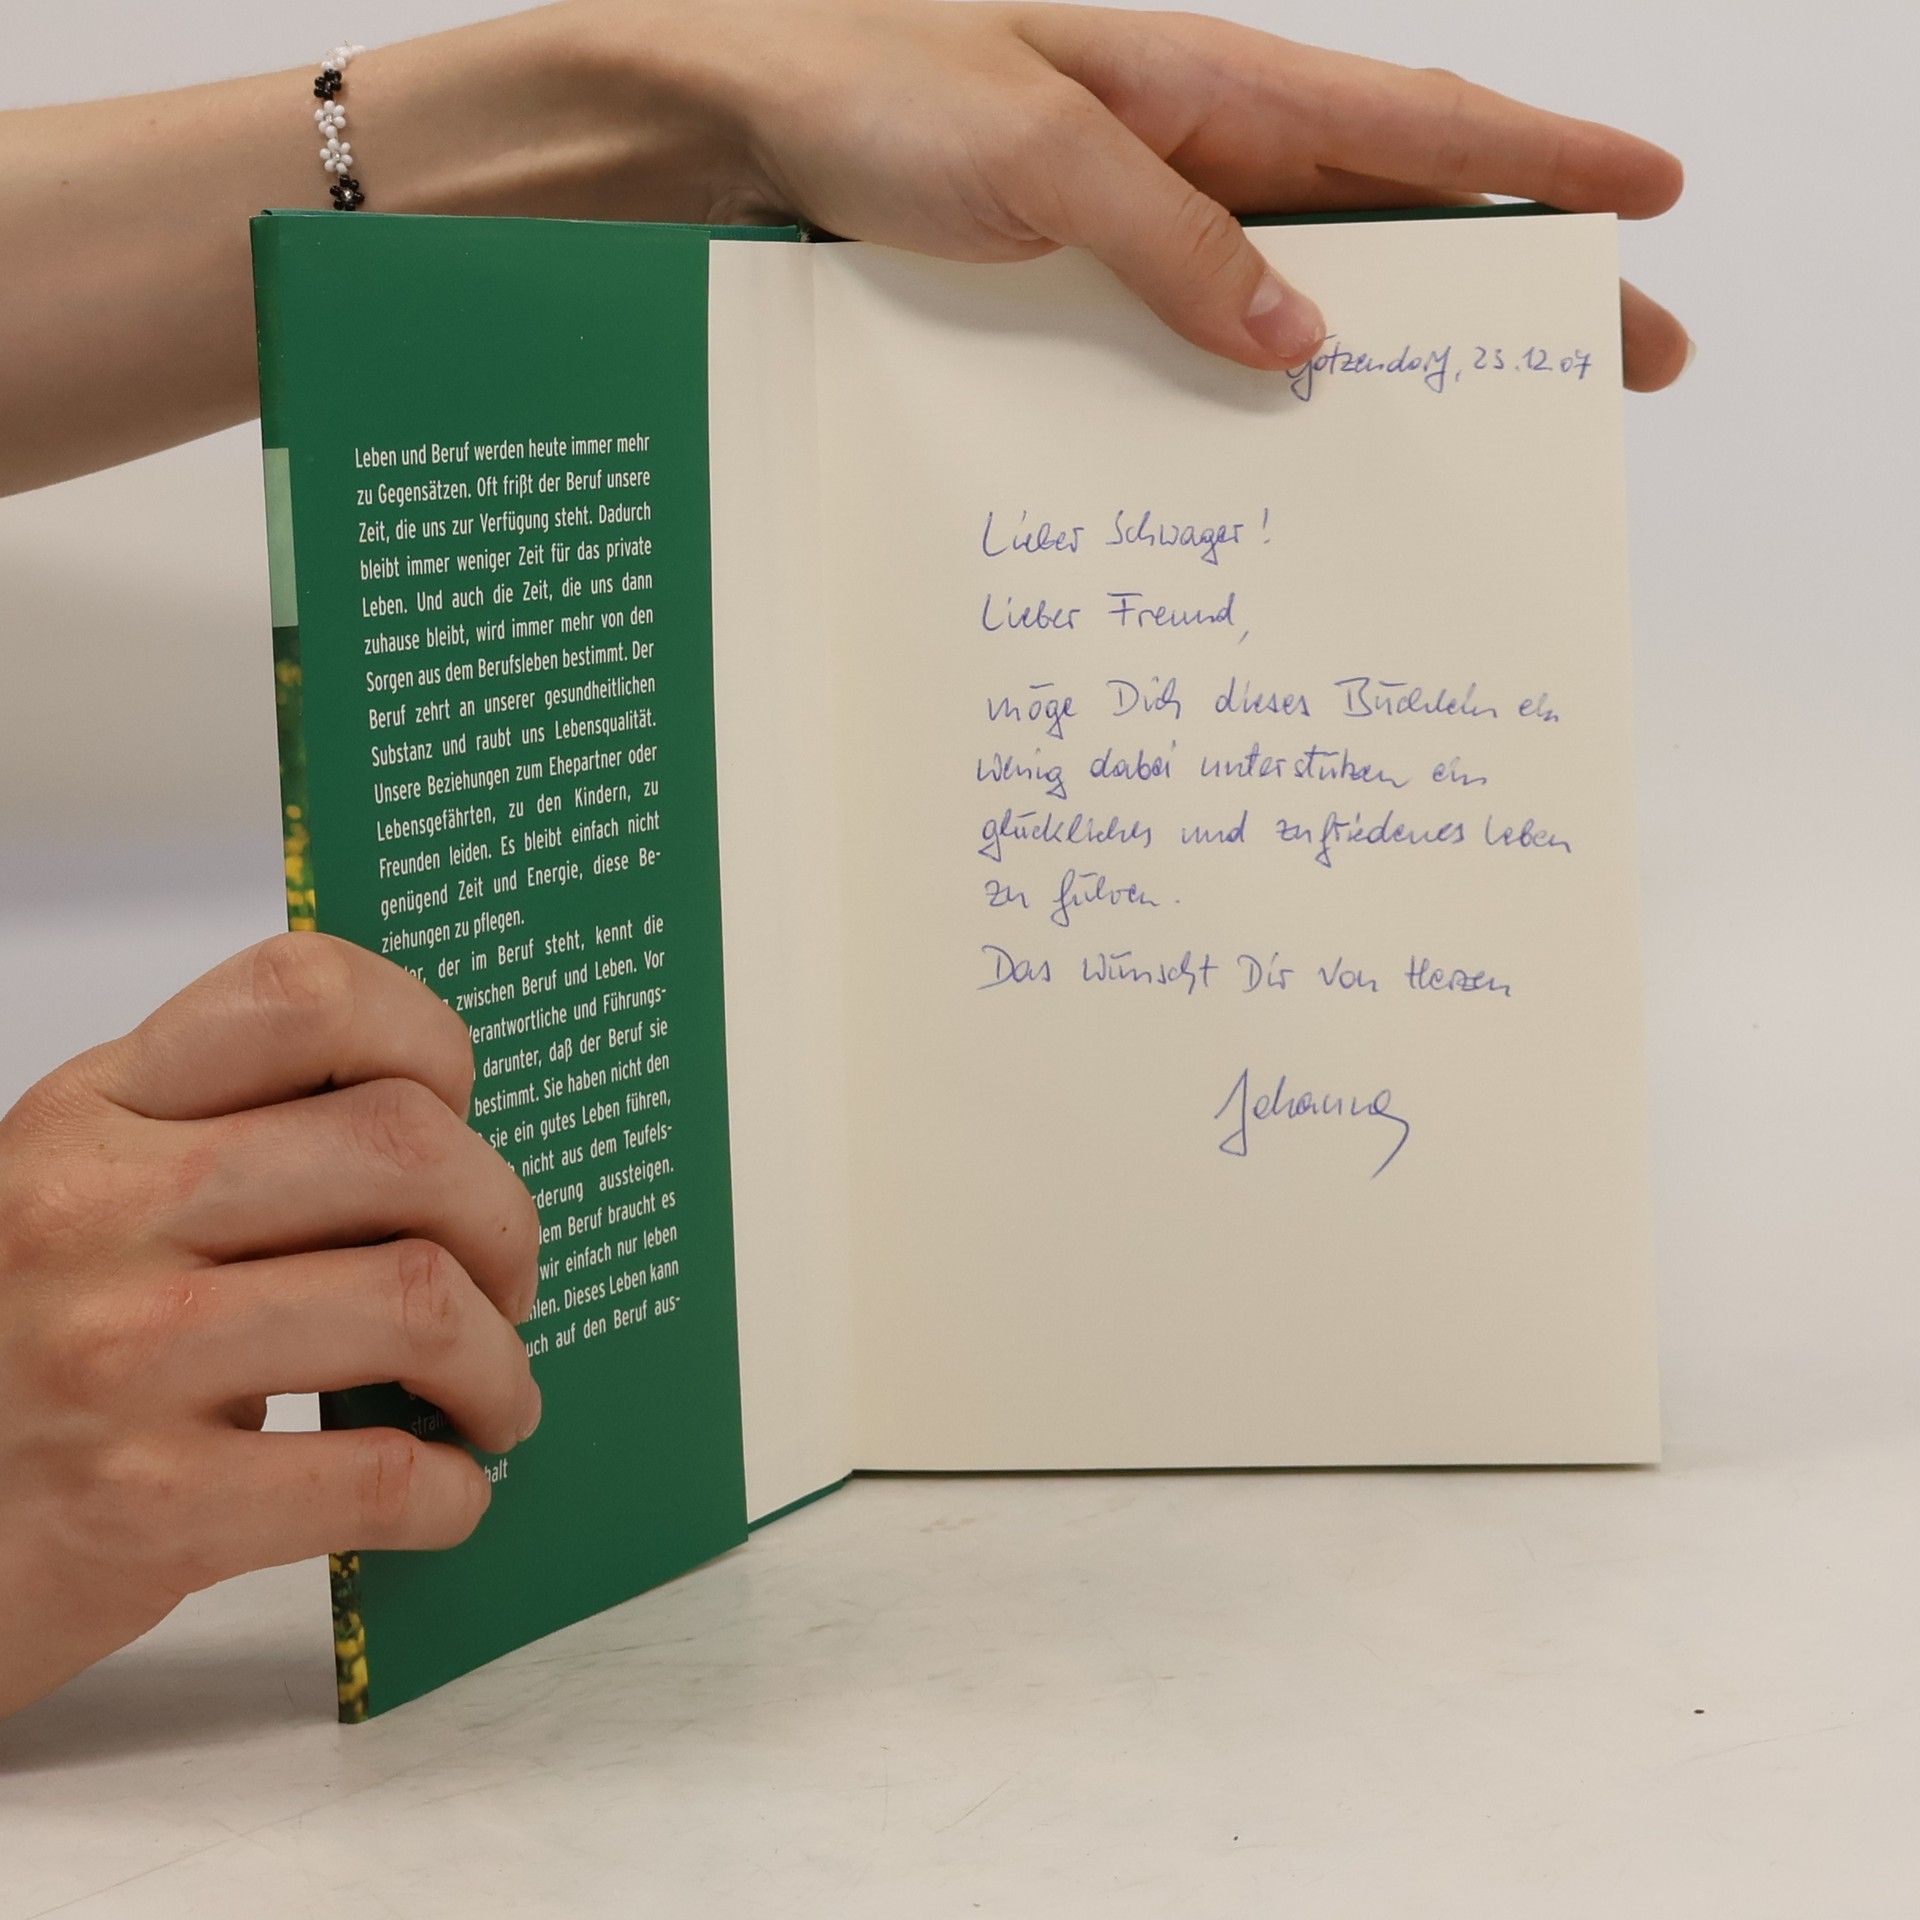 Leben und Beruf werden heute immer mehr
zu Gegensätzen. Oft frißt der Beruf unsere
Zeit, die uns zur Verfügung steht. Dadurch
bleibt immer weniger Zeit für das private
Leben. Und auch die Zeit, die uns dann
zuhause bleibt, wird immer mehr von den
Sorgen aus dem Berufsleben bestimmt. Der
Beruf zehrt an unserer gesundheitlichen
Substanz und raubt uns Lebensqualität.
Unsere Beziehungen zum Ehepartner oder
Lebensgefährten, zu den Kindern, zu
Freunden leiden. Es bleibt einfach nicht
genügend Zeit und Energie, diese Be-
ziehungen zu pflegen.
der im Beruf steht, kennt die
zwischen Beruf und Leben. Vor
erantwortliche und Führungs-
darunter, daß der Beruf sie
bestimmt. Sie haben nicht den
sie ein gutes Leben führen,
nicht aus dem Teufels-
rderung aussteigen.
dem Beruf braucht es
wir einfach nur leben
hlen. Dieses Leben kann
uch auf den Beruf aus-
strah
halt
Götzendorf, 23.12.07
Lieber Schwager!
Lieber Freund,
möge Dich dieses Büchlein ein
wenig dabei unterstützen ein
glückliches und zufriedenes Leben
zu führen.
Das wünscht Dir von Herzen
Johanna